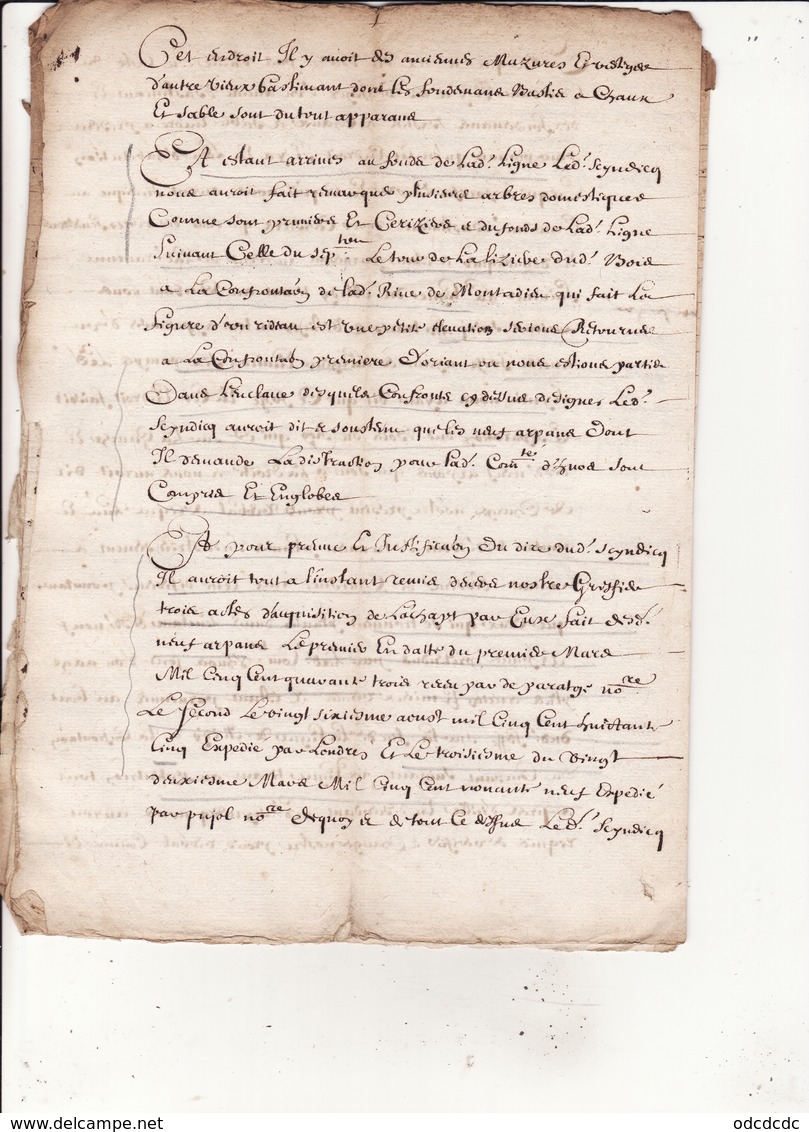 Cet endroit Il y avoit des anciennes Mazures Et vestiges
d'autre vieux bastimant dont les fondemans Bastis a Chaux
Et sable sont du tout apparans
Et estant arrives au fonds de Lad. Ligne Led. Scyndicq
nous auroit fait remarquer plusieurs arbres domestiques
Comme sont pruniers Et Ceriziers e du fonds de Lad. Ligne
suivant Celle du sep.tion Le tour de La liziere dud. Bois
a La Confrontaon de lad. Rive de Montadieu qui fait La
figure d'un rideau est une petite elevation serions Retournes
a La Confrontaon premiere D'oriant ou nous estions partis
Dans L'enclave desquels Confronts cy dessus designes Led.
Scyndicq auroit dit e soustenu que les neuf arpans Dont
Il demande La distraction pour Lad. Com.te d'huos sont
Compris Et Englobes
Et pour preuve Et Justificaon Du dire dud. Scyndicq
Il auroit tout a l'instant remis devers nostre Greffier
trois actes d'aquisition de L'achapt par Eux fait desd.
neuf arpans Le premier En datte du premier Mars
Mil Cinq Cent quarante trois receu par de paratge no.re
Le second Le vingt sixiesme aoust mil Cinq Cent huittante
Cinq Expedié par Londres Et Le troisiesme du vingt
deuxiesme Mars Mil Cinq Cent nonante neuf Expedié
par pujol no.re dequoy et de tout Ce dessus Led. Scyndicq
odcdcdc